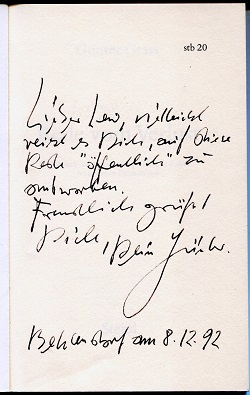 stb 20
Lieber Lew, vielleicht
reizt es Dich, auf diese
Rede "öffentlich" zu
antworten.
Freundlich grüßt
Dich,
Dein Günter.
Behlendorf am 8.12.92